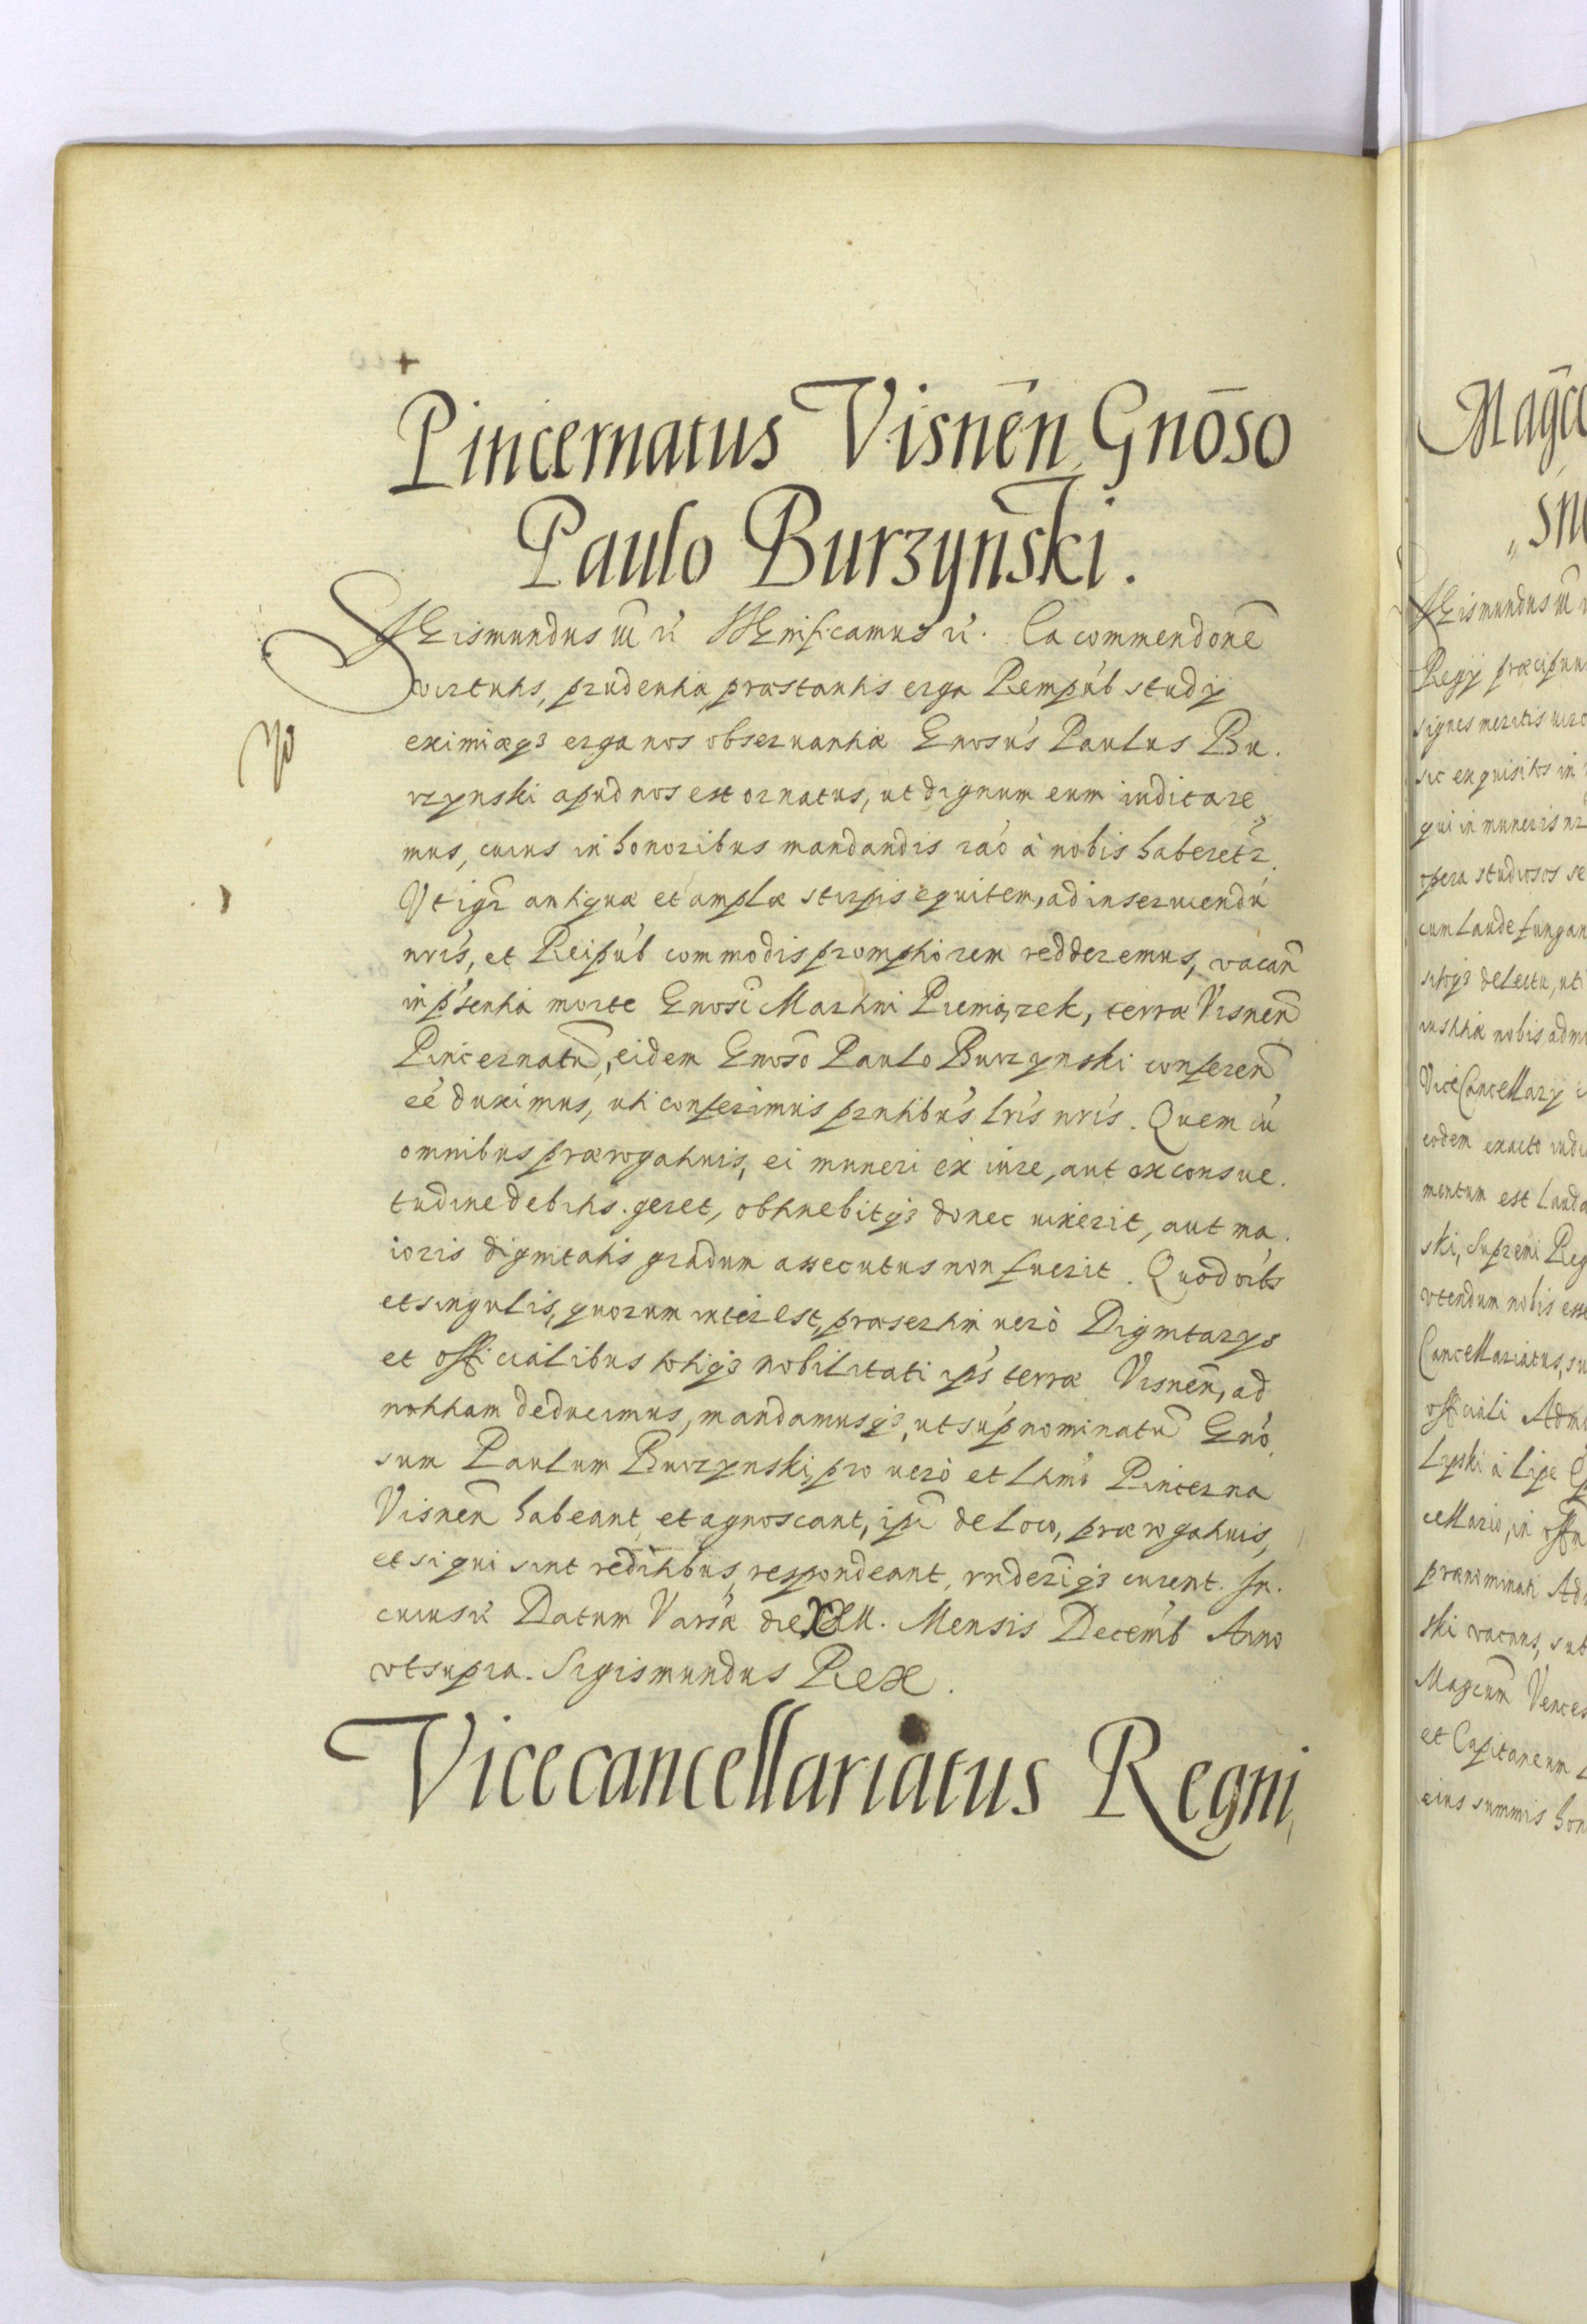 Pincernatus Visneñ Gnōso
Paulo Burzyński.
Sigismundus iii rź Significamus rź. Ea commendone͂
virtutis, prudentia, præstantis erga Rempúb studÿ
eximiæqȝ erga nos obseruantiæ Gnosús Paulus Bu.
rzynski apud nos est ornatus, ut dignum eum iudicare
mus, cuius in honoribus mandandis raó à nobis haberetr.
Vt igr antiquæ et amplæ stirpis equitem, ad inseruiendú
nrís, et Reipúb commodis promptiorem redderemus, vacañ
in pŕsentia morte Gnosi Martini Ziemiązek, terræ Visneñ
Pincernatu͂, eidem Gnoso Paulo Burzynski conferen͂
eé duximus, uti conferimus prntibús lrís nrís. Quem cú
omnibus prærogatiuis, ei muneri ex iure, aut ex consue.
tudine debitis. geret, obtinebitqȝ donec uixerit, aut ma.
ioris dignitatis gradum assecutus non fuerit. Quod oibs
et singulis, quorum interest, præsertim uerò Dignitarÿs
et officialibus totiqȝ nobilitati ips terræ Visneñ, ad
notitiam deducimus, mandamusqȝ, ut súpnominatu͂ Gnó.
sum Paulum Burzynski, pro uerò et ltimo Pincerna
Visneñ habeant, et agnoscant, ipi de loco, prærogatiuis,
et si qui sint reditibus, respondeant, rnderiqȝ curent. In.
cuius rź Datum Varsæ die Mensis Decémb Anno
vt supra. Sigismundus Rex.
Vicecancellariatus Regni,
Magcı
Sigismundus iii r
Regÿ præcipuu
signes meritis uiro
sic exquisitos in
qui in muneris nr
opera studiosos se
cum laude fungan
sitoqȝ delectu, uti
iustitiæ nobis admi
ViceCancellarÿ
eodem exacto iudi
mentum est Lauda
ski, Supremi Reg
vtendum nobis esse
Cancellariatus, su
officiali Adm
Lipski à Lipe Ep
cellario, in offi
prænominati Ad
ski vacans, sub
Magcum Vences
et Capitaneum
eius summis hon